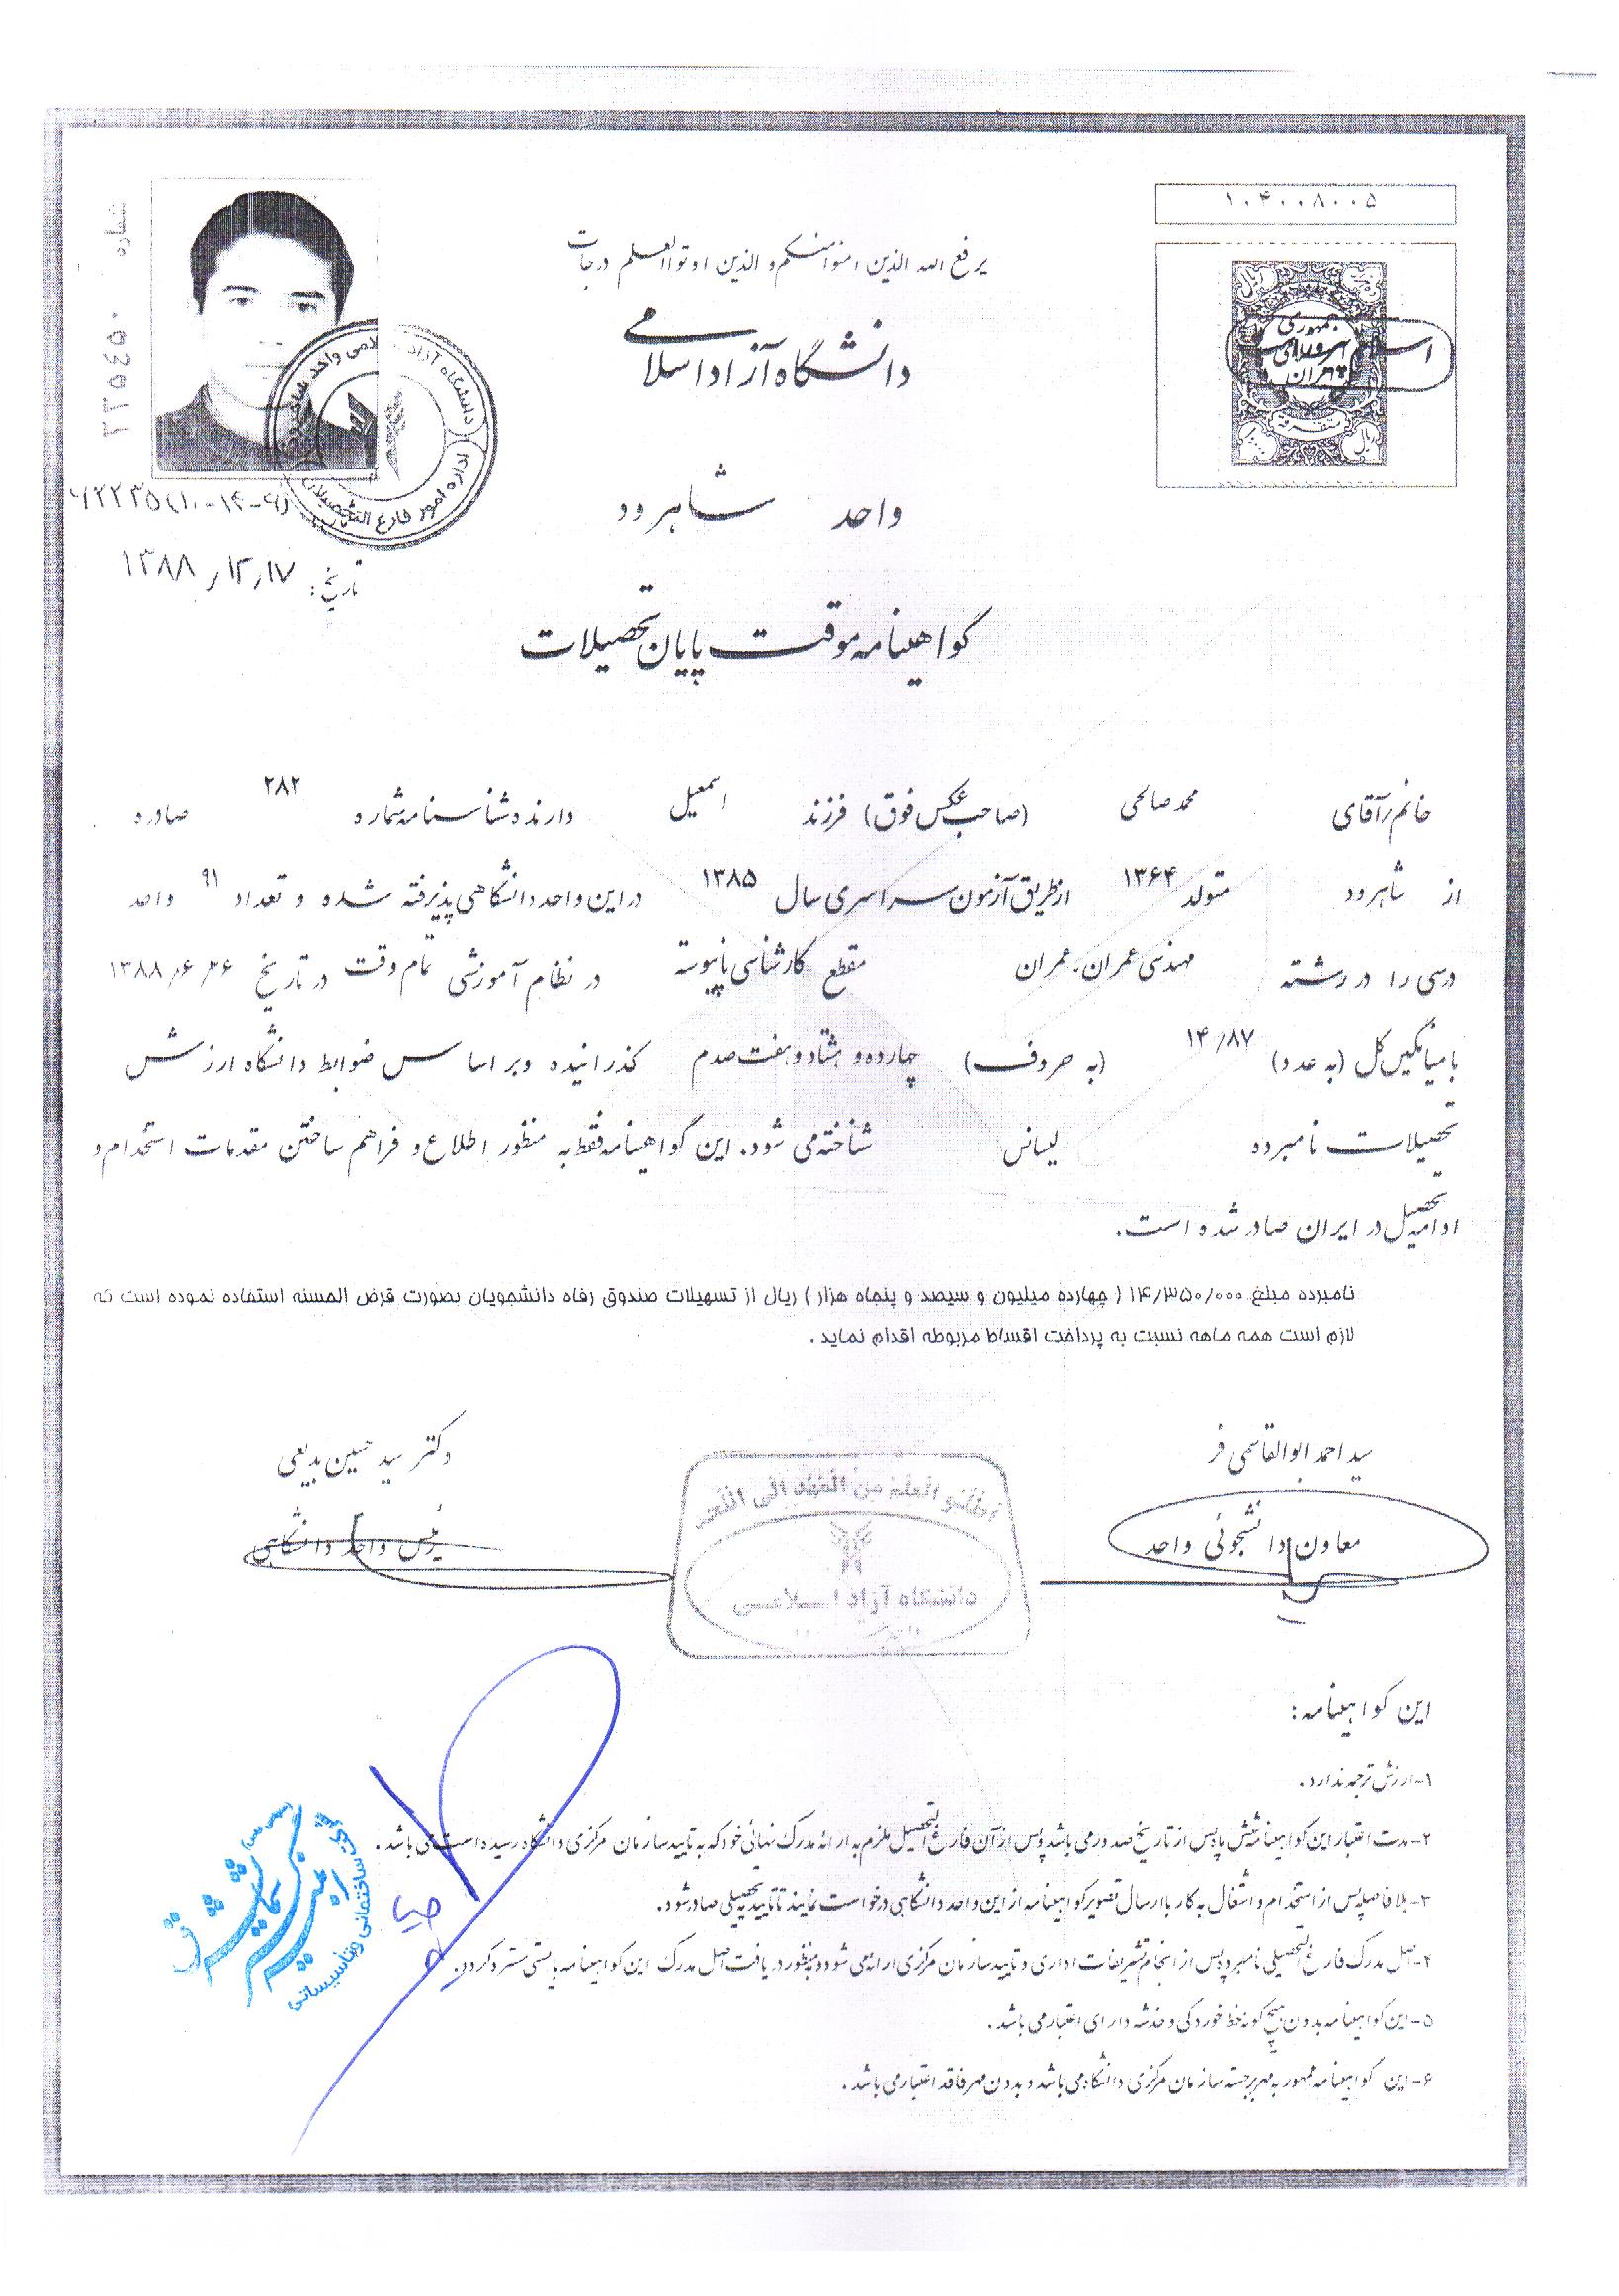 ۱۰۴۰۰۸۰۰۵
یرفع الله الذین امنوا منکم و الذین اوتوا العلم درجات
دانشگاه آزاد اسلامی
واحد شاهرود
شماره ۲۲۵۴۵۰
تاریخ: ۱۳۸۸/۱۲/۱۷
گواهینامه موقت پایان تحصیلات
خانم/آقای محمد صالحی (صاحب عکس فوق) فرزند اسمعیل دارنده شناسنامه شماره ۲۸۲ صادره
از شاهرود متولد ۱۳۶۴ از طریق آزمون سراسری سال ۱۳۸۵ در این واحد دانشگاهی پذیرفته شده و تعداد ۹۱ واحد
درسی را در رشته مهندسی عمران، عمران مقطع کارشناسی ناپیوسته در نظام آموزشی تمام وقت در تاریخ ۱۳۸۸/۶/۲۶
با میانگین کل (به عدد) ۱۴/۸۷ (به حروف) چهارده و هشتاد و هفت صدم گذرانیده و بر اساس ضوابط دانشگاه ارزش
تحصیلات نامبرده لیسانس شناخته می شود. این گواهینامه فقط به منظور اطلاع و فراهم ساختن مقدمات استخدام و
ادامه تحصیل در ایران صادر شده است.
نامبرده مبلغ ۱۴/۳۵۰/۰۰۰ ( چهارده میلیون و سیصد و پنجاه هزار ) ریال از تسهیلات صندوق رفاه دانشجویان بصورت قرض الحسنه استفاده نموده است که
لازم است همه ماهه نسبت به پرداخت اقساط مربوطه اقدام نماید .
سید احمد ابوالقاسمی فر
معاون دانشجوئی واحد
دکتر سید حسین بدیعی
رئیس واحد دانشگاهی
اطلبو العلم من المهد الی اللحد
دانشگاه آزاد اسلامی
این گواهینامه:
۱-ارزش ترجمه ندارد.
۲-مدت اعتبار این گواهینامه شش ماه پس از تاریخ صدور می باشد و پس از آن فارغ التحصیل ملزم به ارائه مدرک نهائی خود که به تایید سازمان مرکزی دانشگاه رسیده است می باشد .
۳-بلافاصله پس از استخدام و اشتغال به کار با ارسال تصویر گواهینامه از این واحد دانشگاهی درخواست نمایند تا تاییدیه تحصیلی صادر شود.
۴-اصل مدرک فارغ التحصیلی نامبرده پس از انجام تشریفات اداری و تایید سازمان مرکزی ارائه می شود و به منظور دریافت اصل مدرک این گواهینامه بایستی مسترد گردد.
۵-این گواهینامه بدون هیچ گونه خط خوردگی و خدشه دارای اعتبار می باشد .
۶-این گواهینامه ممهور به مهر برجسته سازمان مرکزی دانشگاه می باشد و بدون مهر فاقد اعتبار می باشد .